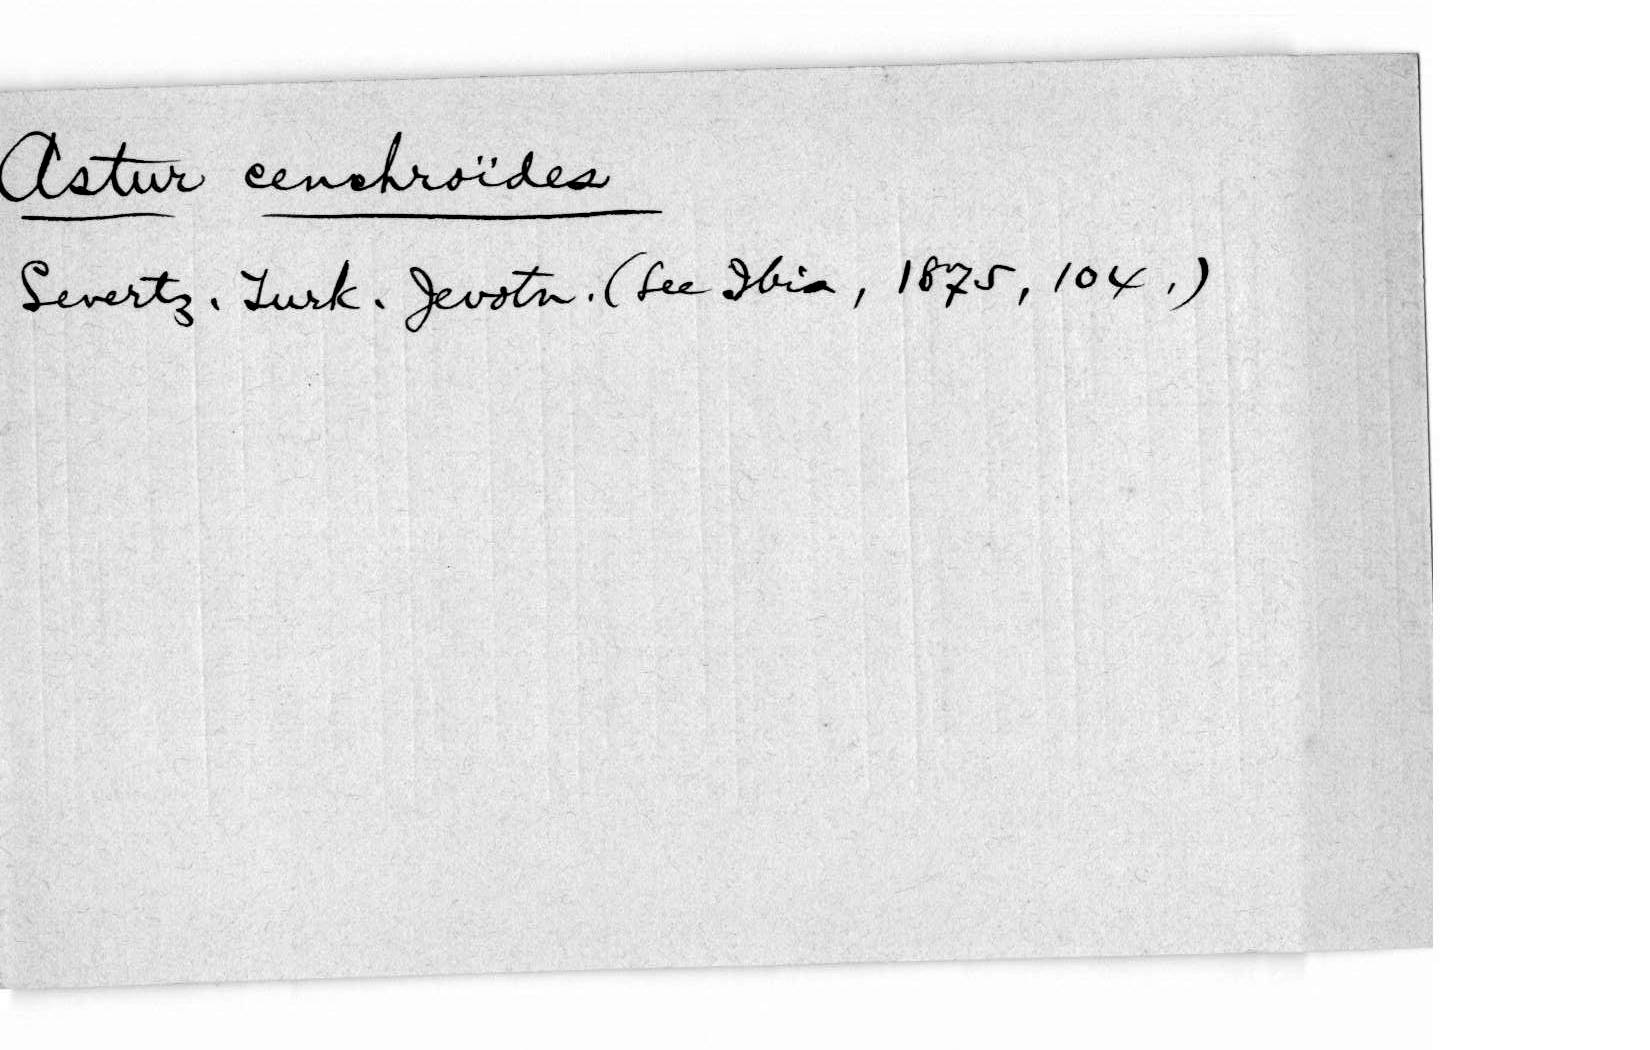 Astur cenchroïdes
Severtz. Turk. Jevotn. (See Ibis, 1875, 104.)